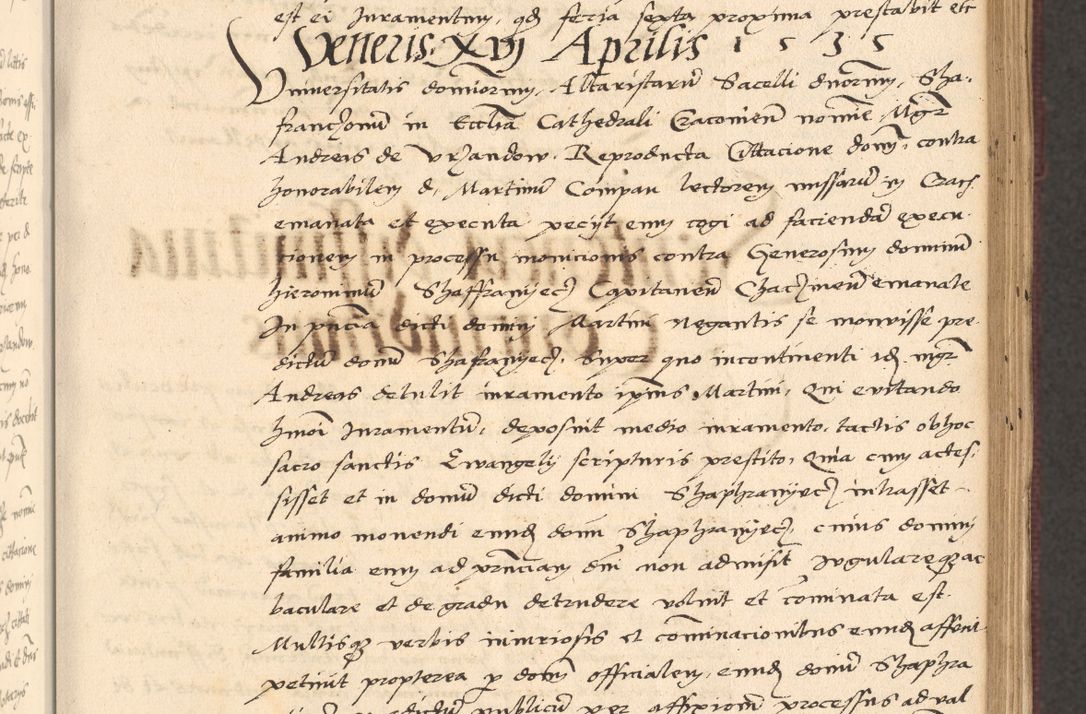 est ei Juramentum, qd feria sexta proxima prestabit etc
Veneris XVI Aprilis 1535
Universitatis dominorum Altaristarum Sacelli dnorum Sha-
franczonum in Ecclia Cathedrali Cracovien nomine Mgr
Andreas de Vrzandow. Reproducta Cittacione domi, contra
honorabilem d. Martinum Compan lectorem missarum in Crach
emanata et executa peciit eum cogi ad faciendam execu-
tionem in processu monicionis contra Generosum dominum
hieronimum Shaffranyecz Capitaneum Chaczinen emanate
In pncia dicti domini Martini negantis se monuisse pre-
dictum domum Shafranyecz. Super quo incontinenti id mgr
Andreas detulit iuramento ipius Martini, Qui evitando
hmoi Juramentum, deposuit medio iuramento, tactis ob hoc
sacro sanctis Ewangelij scripturis prestito, Quia cum acces-
sisset et in domum dicti domini Shaphranyecz intrasset
animo monendi eund dom Shaphranyecz, cuius domini
familia eum ad prnciam dni non admisit Jugulareque ac
baculare et de gradu detrudere voluit et cominata est.
Multisque verbis iniuriosis et cominacionibus eund affecit
petiuit propterea p dom officialem, eund domum Shaphra
publicum per affixionem processus ad val